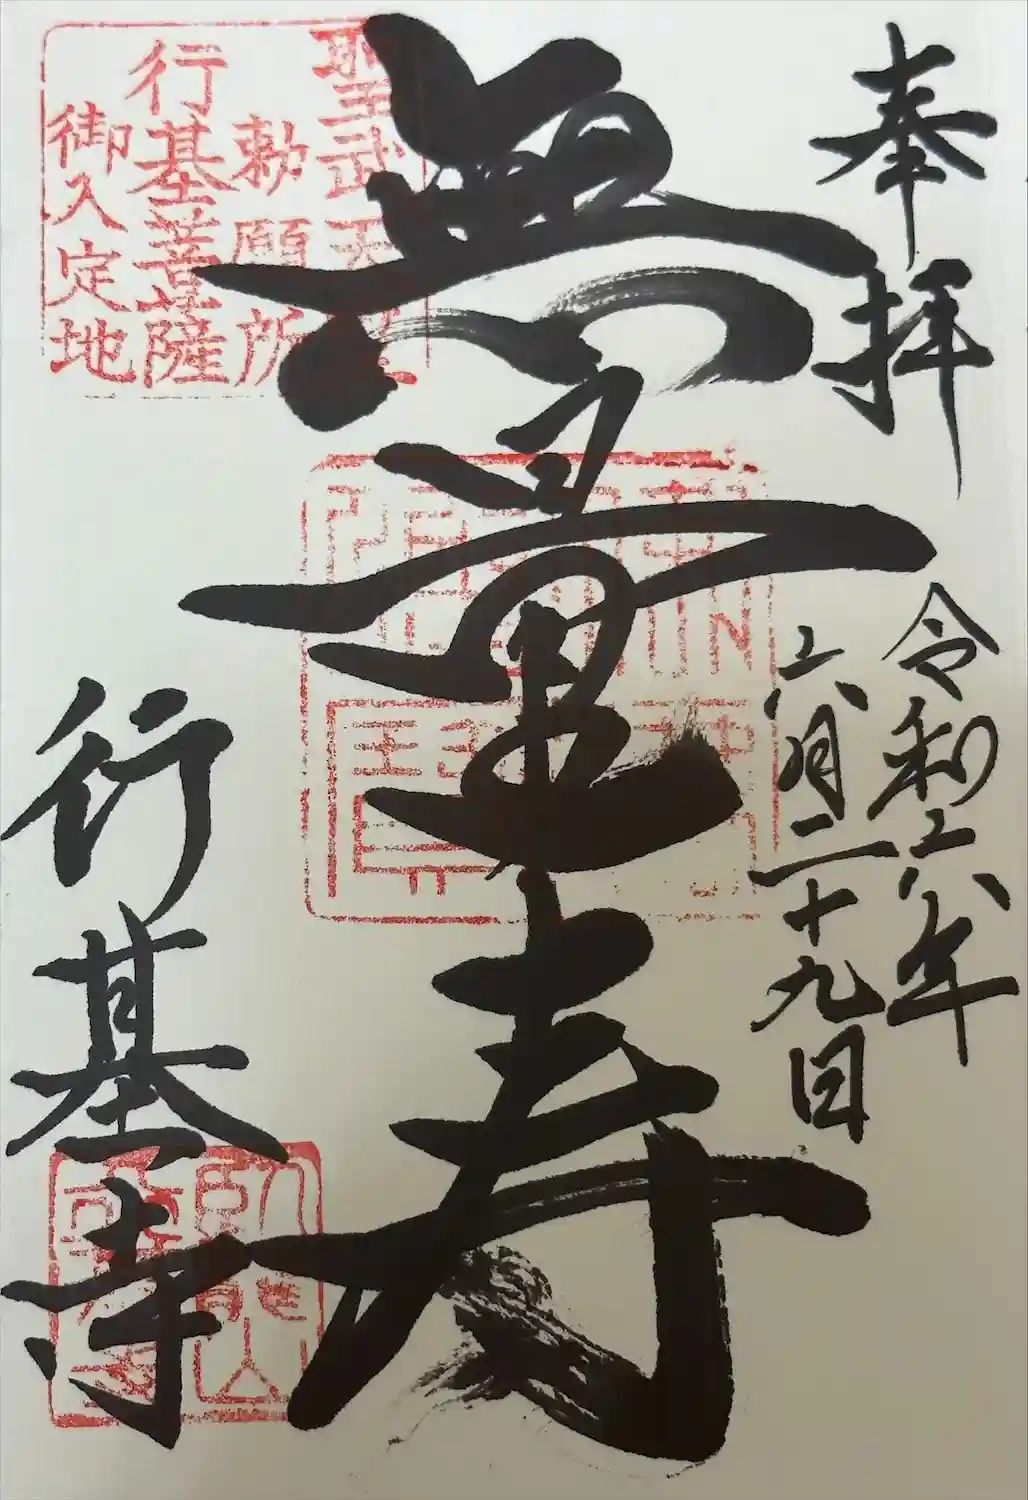 奉拝
令和六年
六月二十九日
無量寿
行基寺
聖武天皇
勅願所
行基菩薩
御入定地